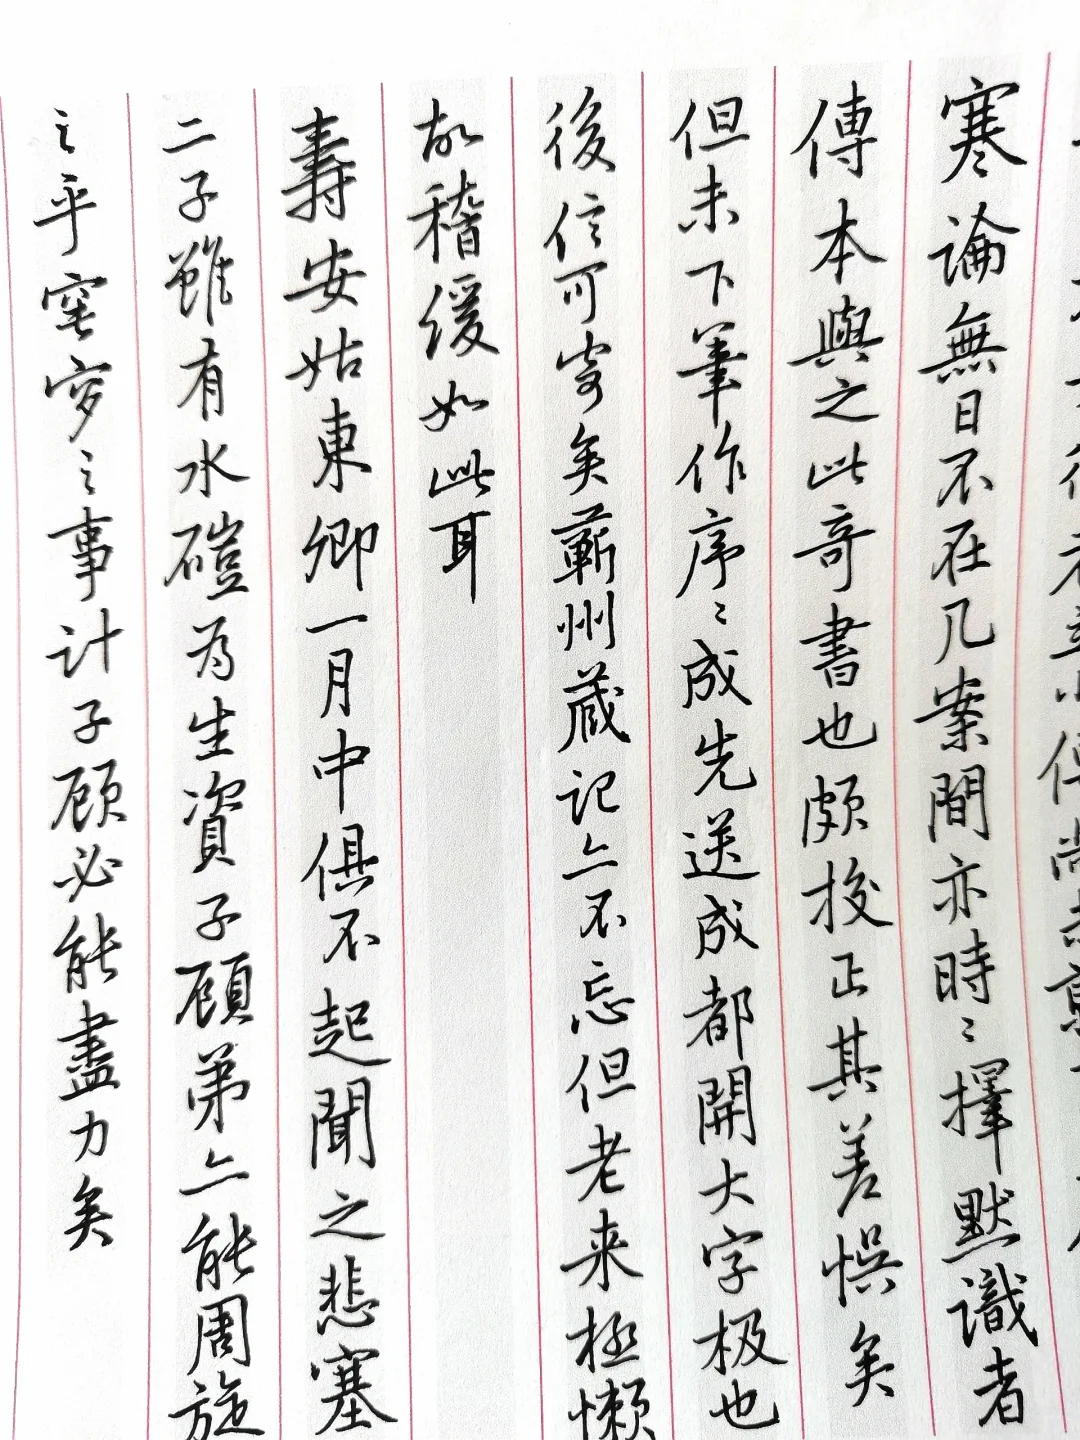 寒論無日不在几案間亦時〻擇默識者
傳本與之此奇書也頗挍正其差悞矣
但未下筆作序〻成先送成都開大字极也
後信可寄矣蘄州藏記亦不忘但老来極懶
故稽缓如此耳
壽安姑東卿一月中俱不起聞之悲塞
二子雖有水磑为生資子顾弟亦能周旋
之乎窀穸之事计子顾必能盡力矣